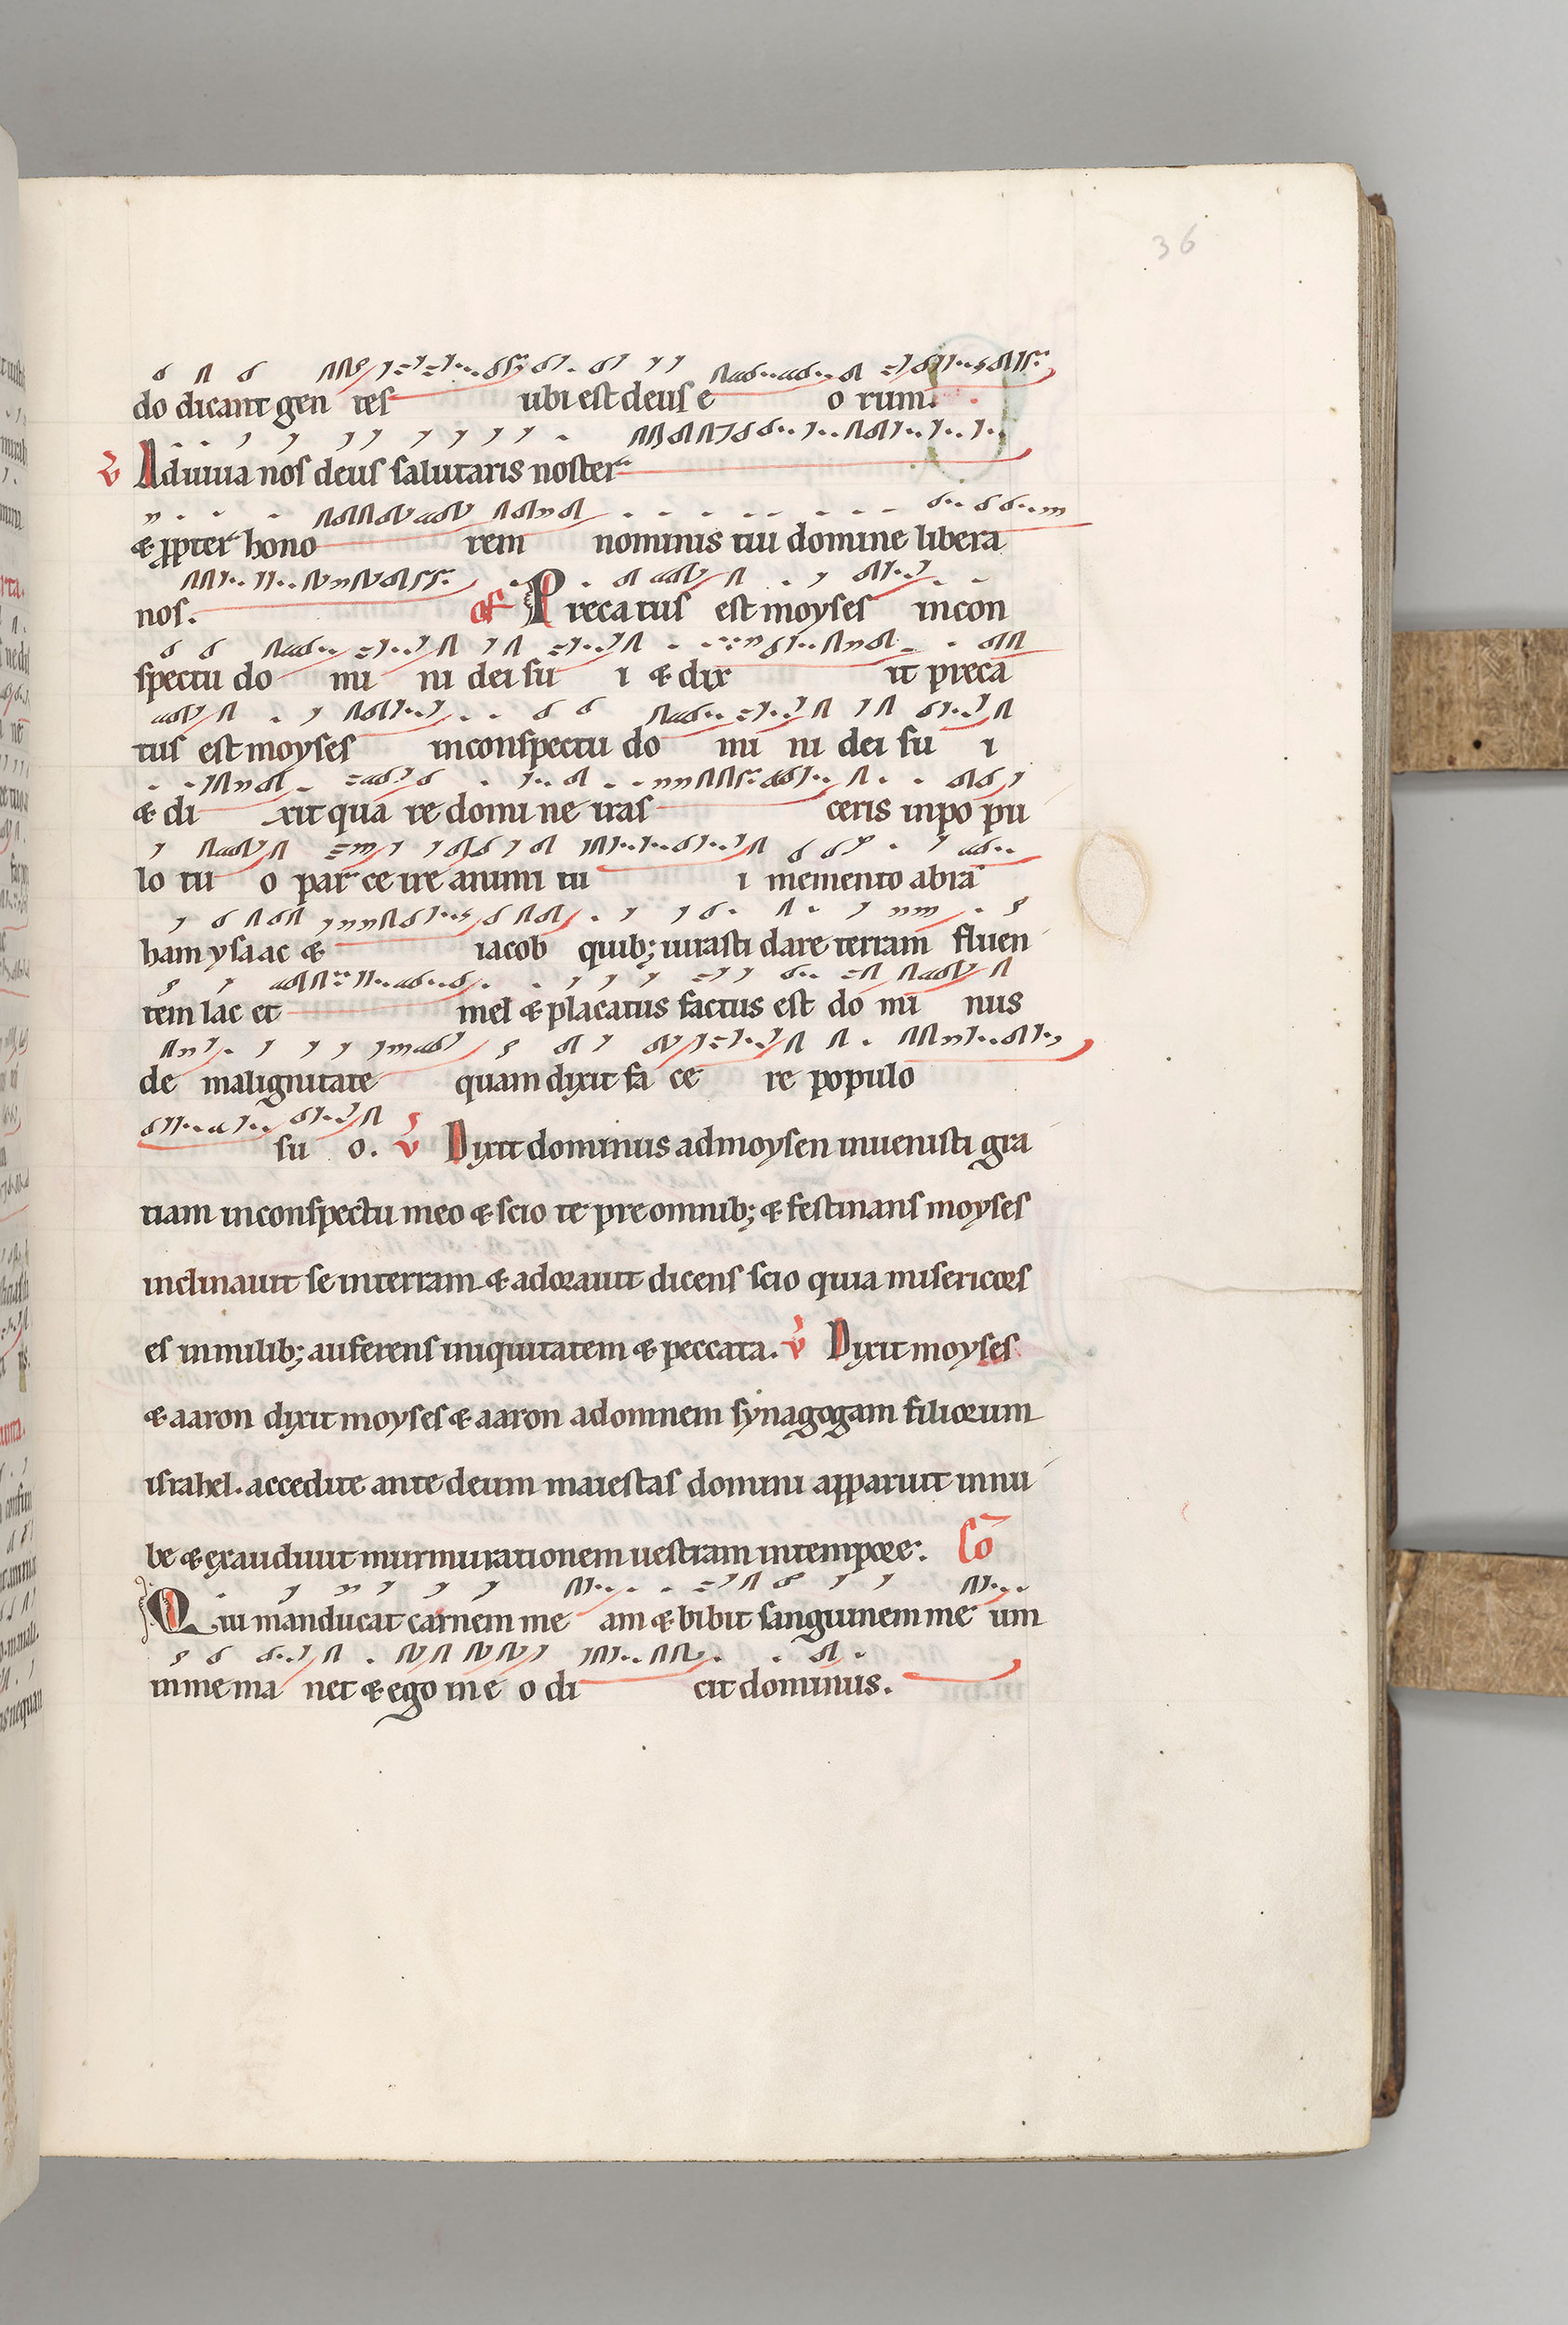 36
do dicant gen tes ubi est deus e o rum.
v Adiuua nos deus salutaris noster
& ppter hono rem nominis tui domine libera
nos. of Precatus est moyses incon
spectu do mi ni dei su i & dix it preca
tus est moyses inconspectu do mi ni dei su i
& di xit qua re domi ne iras ceris inpo pu
lo tu o par ce ire animi tu i memento abrā
ham ysaac & iacob quib; iurasti dare terram fluen
tem lac et mel & placatus factus est do mi nus
de malignitate quam dixit fa ce re populo
su o. v Dixit dominus admoysen inuenisti gra
tiam inconspectu meo & scio te pre omnib; & festinans moyses
inclinauit se interram & adorauit dicens scio quia misericors
es inmilib; auferens iniquitatem & peccata. v Dixit moyses
& aaron dixit moyses & aaron adomnem synagogam filiorum
israhel. accedite ante deum maiestas domini apparuit innu
be & exaudiuit murmurationem uestram intempore. Cō
Qui manducat carnem me am & bibit sanguinem me um
inme ma net & ego in e o di cit dominus.